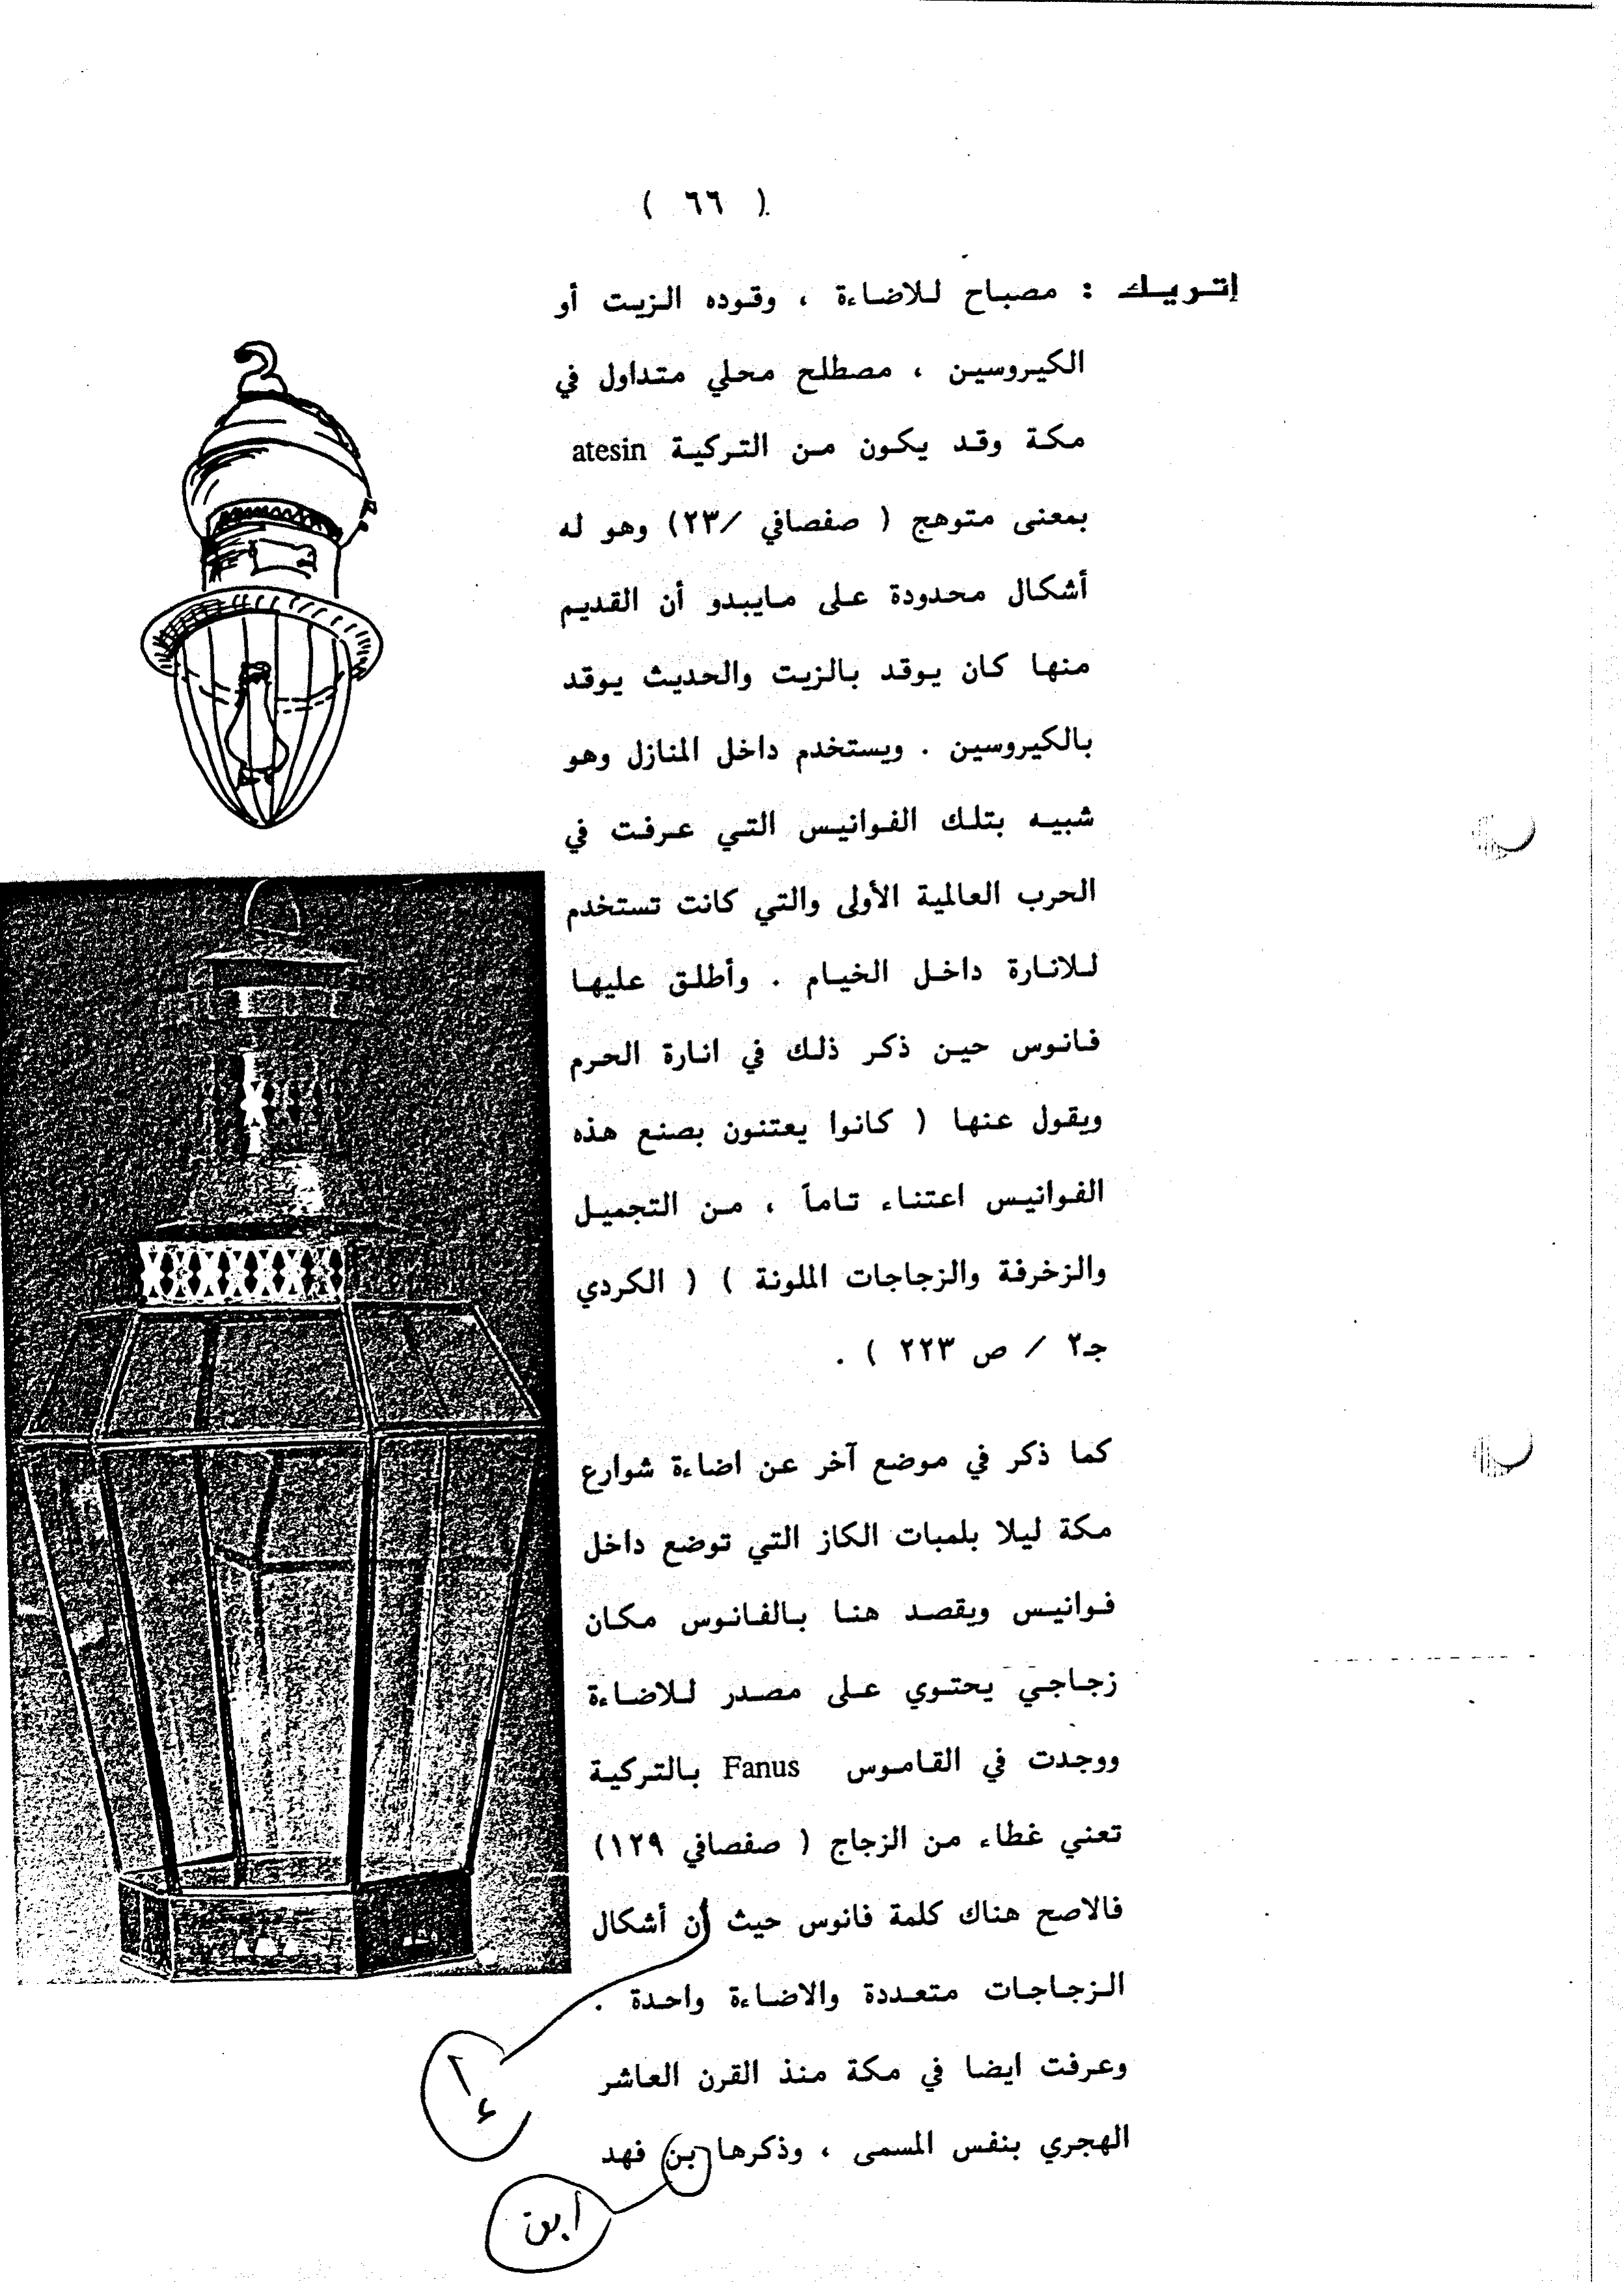 ( ٦٦ )
إتريك : مصباح للاضاءة ، وقوده الزيت أو
الكيروسين ، مصطلح محلي متداول في
مكة وقد يكون من التركية atesin
بمعنى متوهج ( صفصافي /٢٣) وهو له
أشكال محدودة على مايبدو أن القديم
منها كان يوقد بالزيت والحديث يوقد
بالكيروسين . ويستخدم داخل المنازل وهو
شبيه بتلك الفوانيس التي عرفت في
الحرب العالمية الأولى والتي كانت تستخدم
للانارة داخل الخيام . وأطلق عليها
فانوس حين ذكر ذلك في انارة الحرم
ويقول عنها ( كانوا يعتنون بصنع هذه
الفوانيس اعتناء تاماً ، من التجميل
والزخرفة والزجاجات الملونة ) ( الكردي
جـ٢ / ص ٢٢٣ ) .
كما ذكر في موضع آخر عن اضاءة شوارع
مكة ليلا بلمبات الكاز التي توضع داخل
فوانيس ويقصد هنا بالفانوس مكان
زجاجي يحتوي على مصدر للاضاءة
ووجدت في القاموس Fanus بالتركية
تعني غطاء من الزجاج ( صفصافي ١٢٩)
فالاصح هناك كلمة فانوس حيث أن أشكال
الزجاجات متعددة والاضاءة واحدة .
وعرفت ايضا في مكة منذ القرن العاشر
الهجري بنفس المسمى ، وذكرها بن فهد
إ
ابن